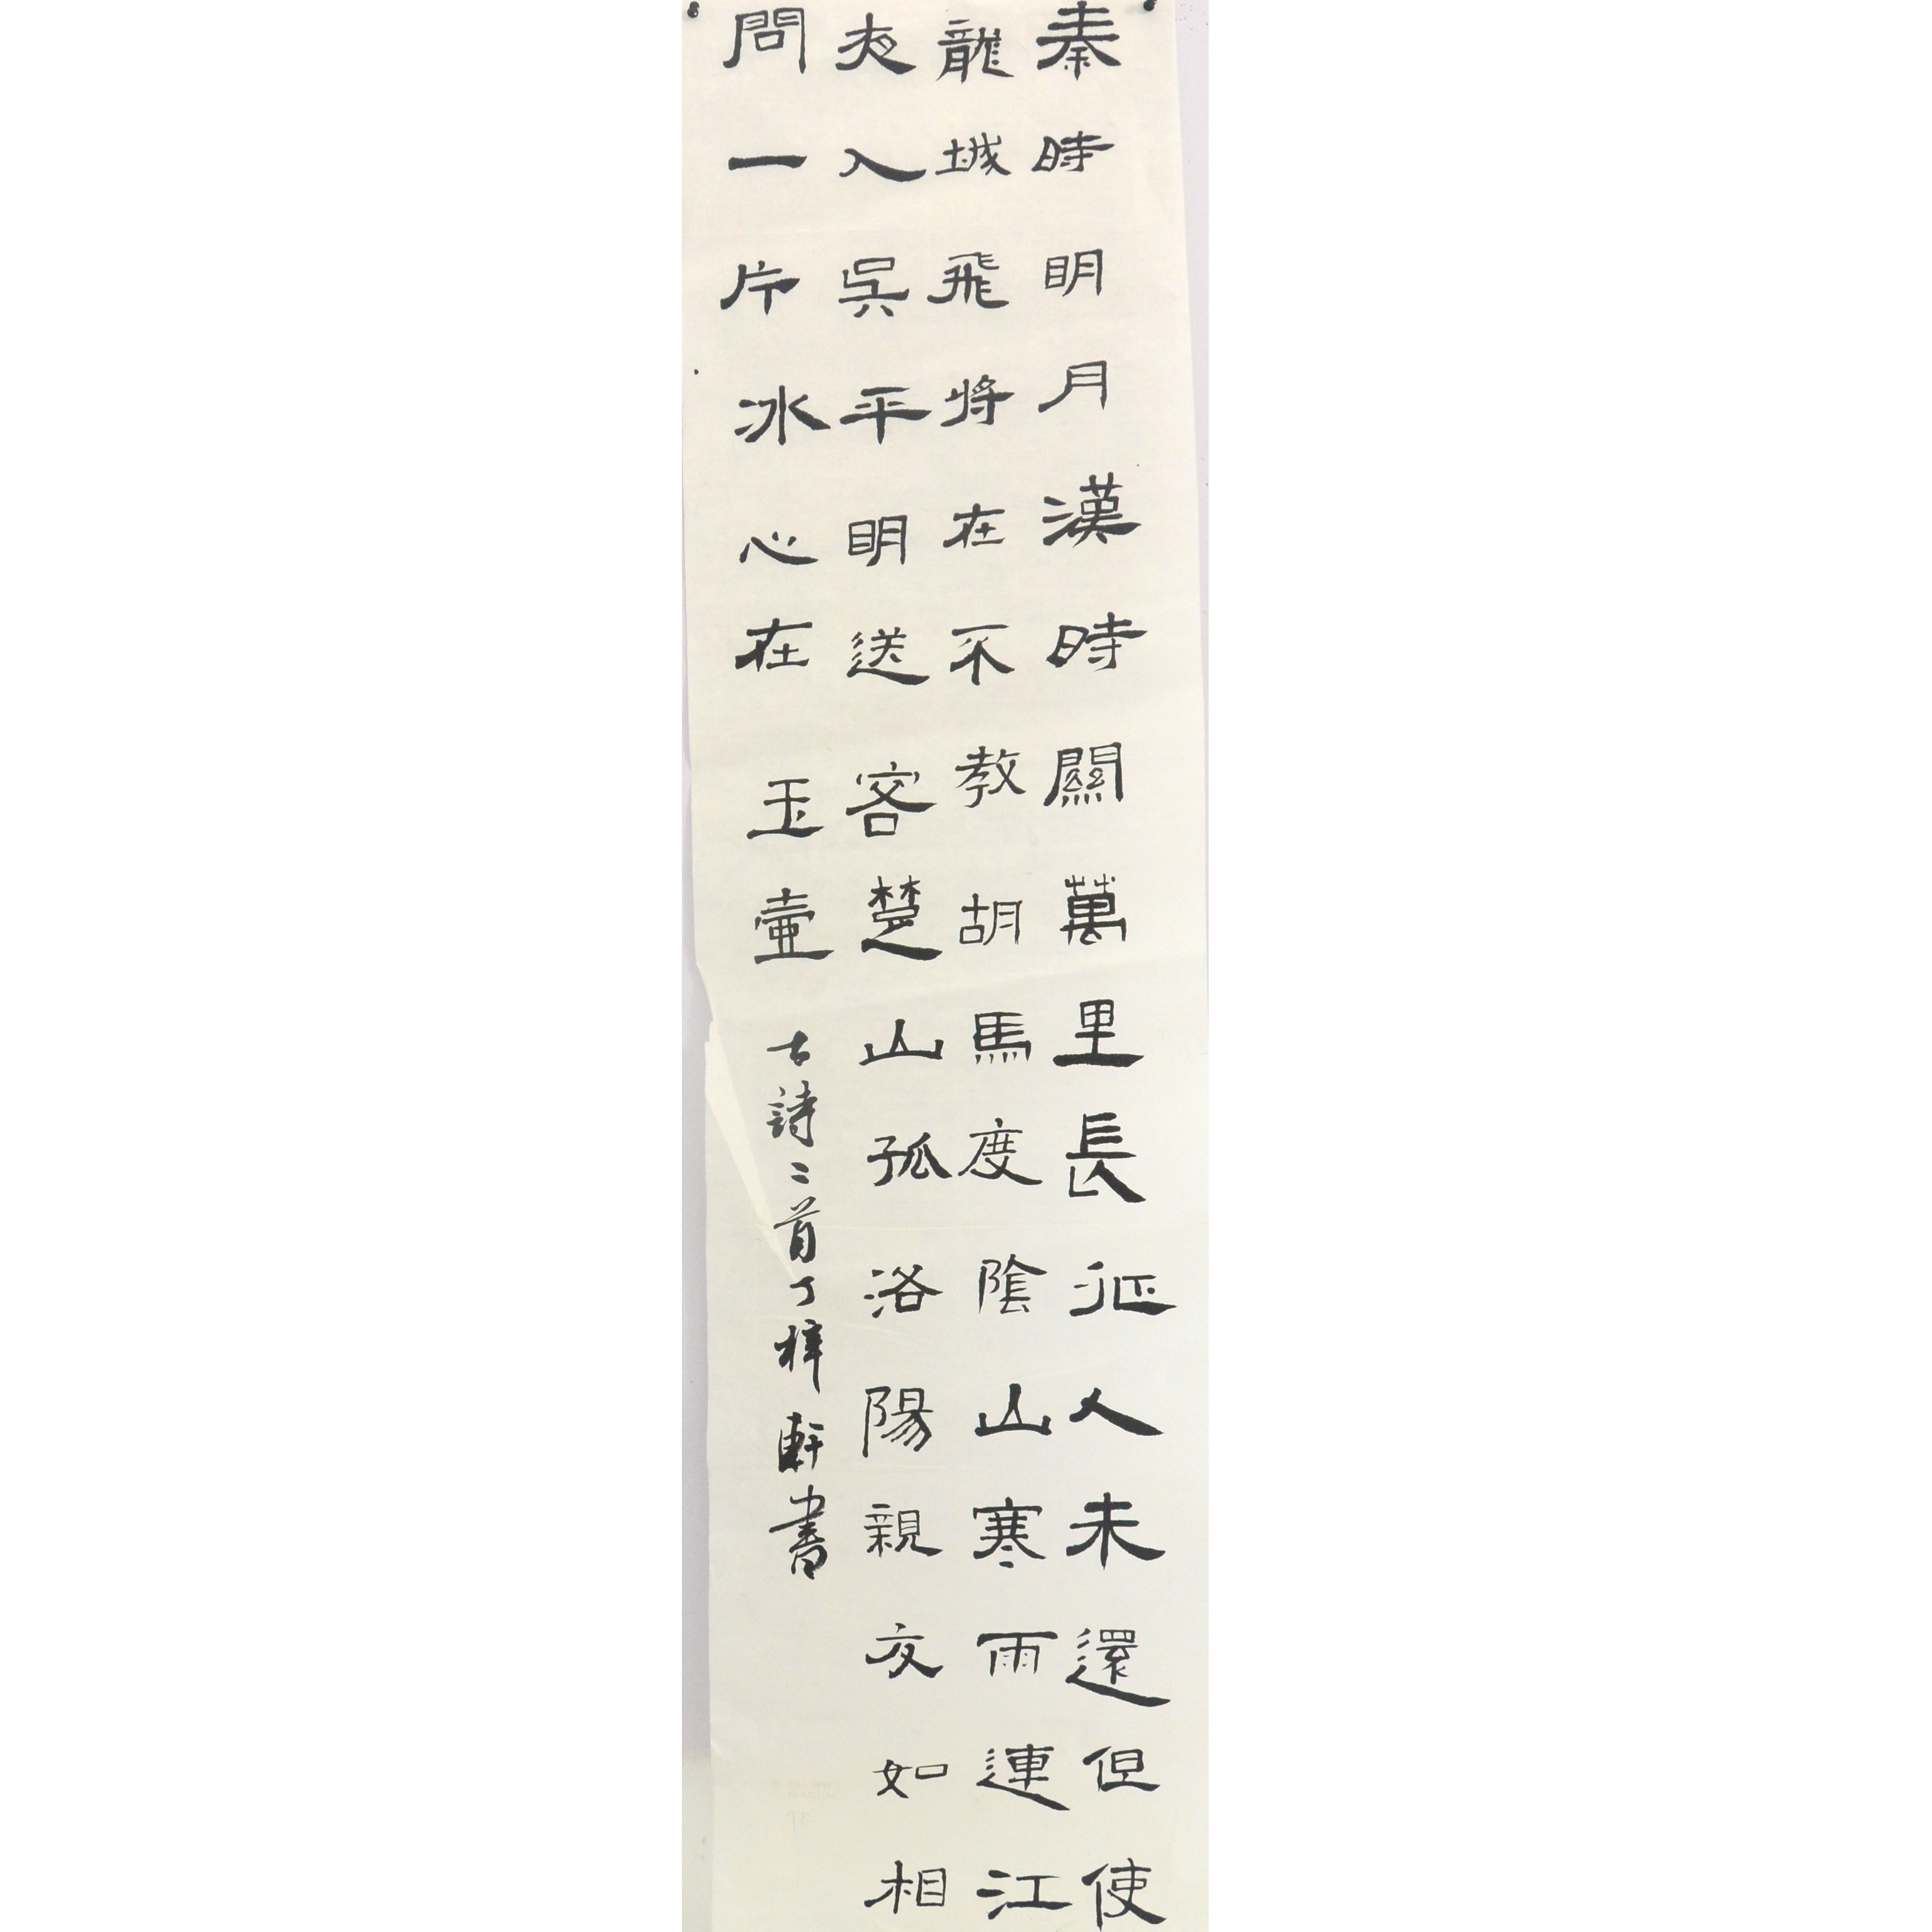 秦時明月漢時關萬里長征人未還但使
龍城飛將在不教胡馬度陰山寒雨連江
夜入吳平明送客楚山孤洛陽親友如相
問一片冰心在玉壷
古詩二首丁梓軒書